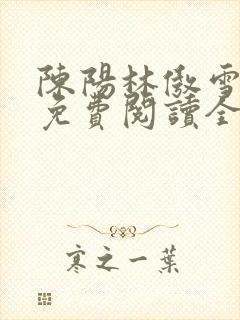 陳陽林傲雪
免費閱讀全
寒之一葉